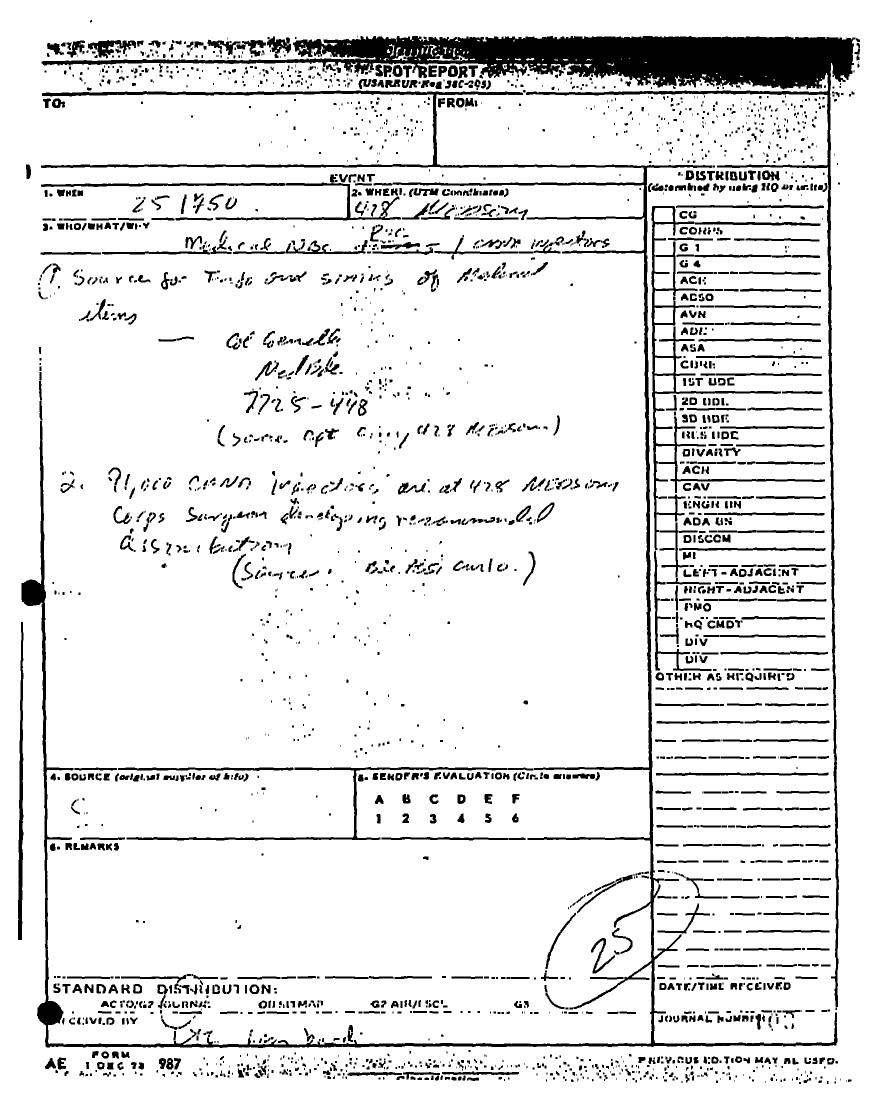 SPOT REPORT
(USAREUR Reg 380-205)
TO:
FROM:
EVENT
DISTRIBUTION
(determined by using HQ or units)
1. WHEN
251750
2. WHERE (UTM Coordinates)
428 MEDSOM
3. WHO/WHAT/WHY
Medical NBC / injectors
1. Source for Info and of Medical
items
— Col
Med Bde
7725-448
(Source Cpt 428 MEDSOM)
2. 91,000 injectors are at 428 MEDSOM
Corps Surgeon developing recommended
distribution
(Source:
CG
CORPS
G 1
G 4
ACE
ADSO
AVN
ADE
ASA
CBRE
1ST BDE
2D BDE
3D BDE
RES BDE
DIVARTY
ACR
CAV
ENGR BN
ADA BN
DISCOM
MI
LEFT-ADJACENT
RIGHT-ADJACENT
PMO
HQ CMDT
DIV
DIV
OTHER AS REQUIRED
4. SOURCE (original supplier of info)
5. SENDER'S EVALUATION (Circle answers)
A B C D E F
1 2 3 4 5 6
6. REMARKS
25
STANDARD DISTRIBUTION:
ACTO/G2 JOURNAL G3
DATE/TIME RECEIVED
RECEIVED BY
JOURNAL NUMBER
AE FORM 1 DEC 78 987
PREVIOUS EDITION MAY BE USED.
Classification